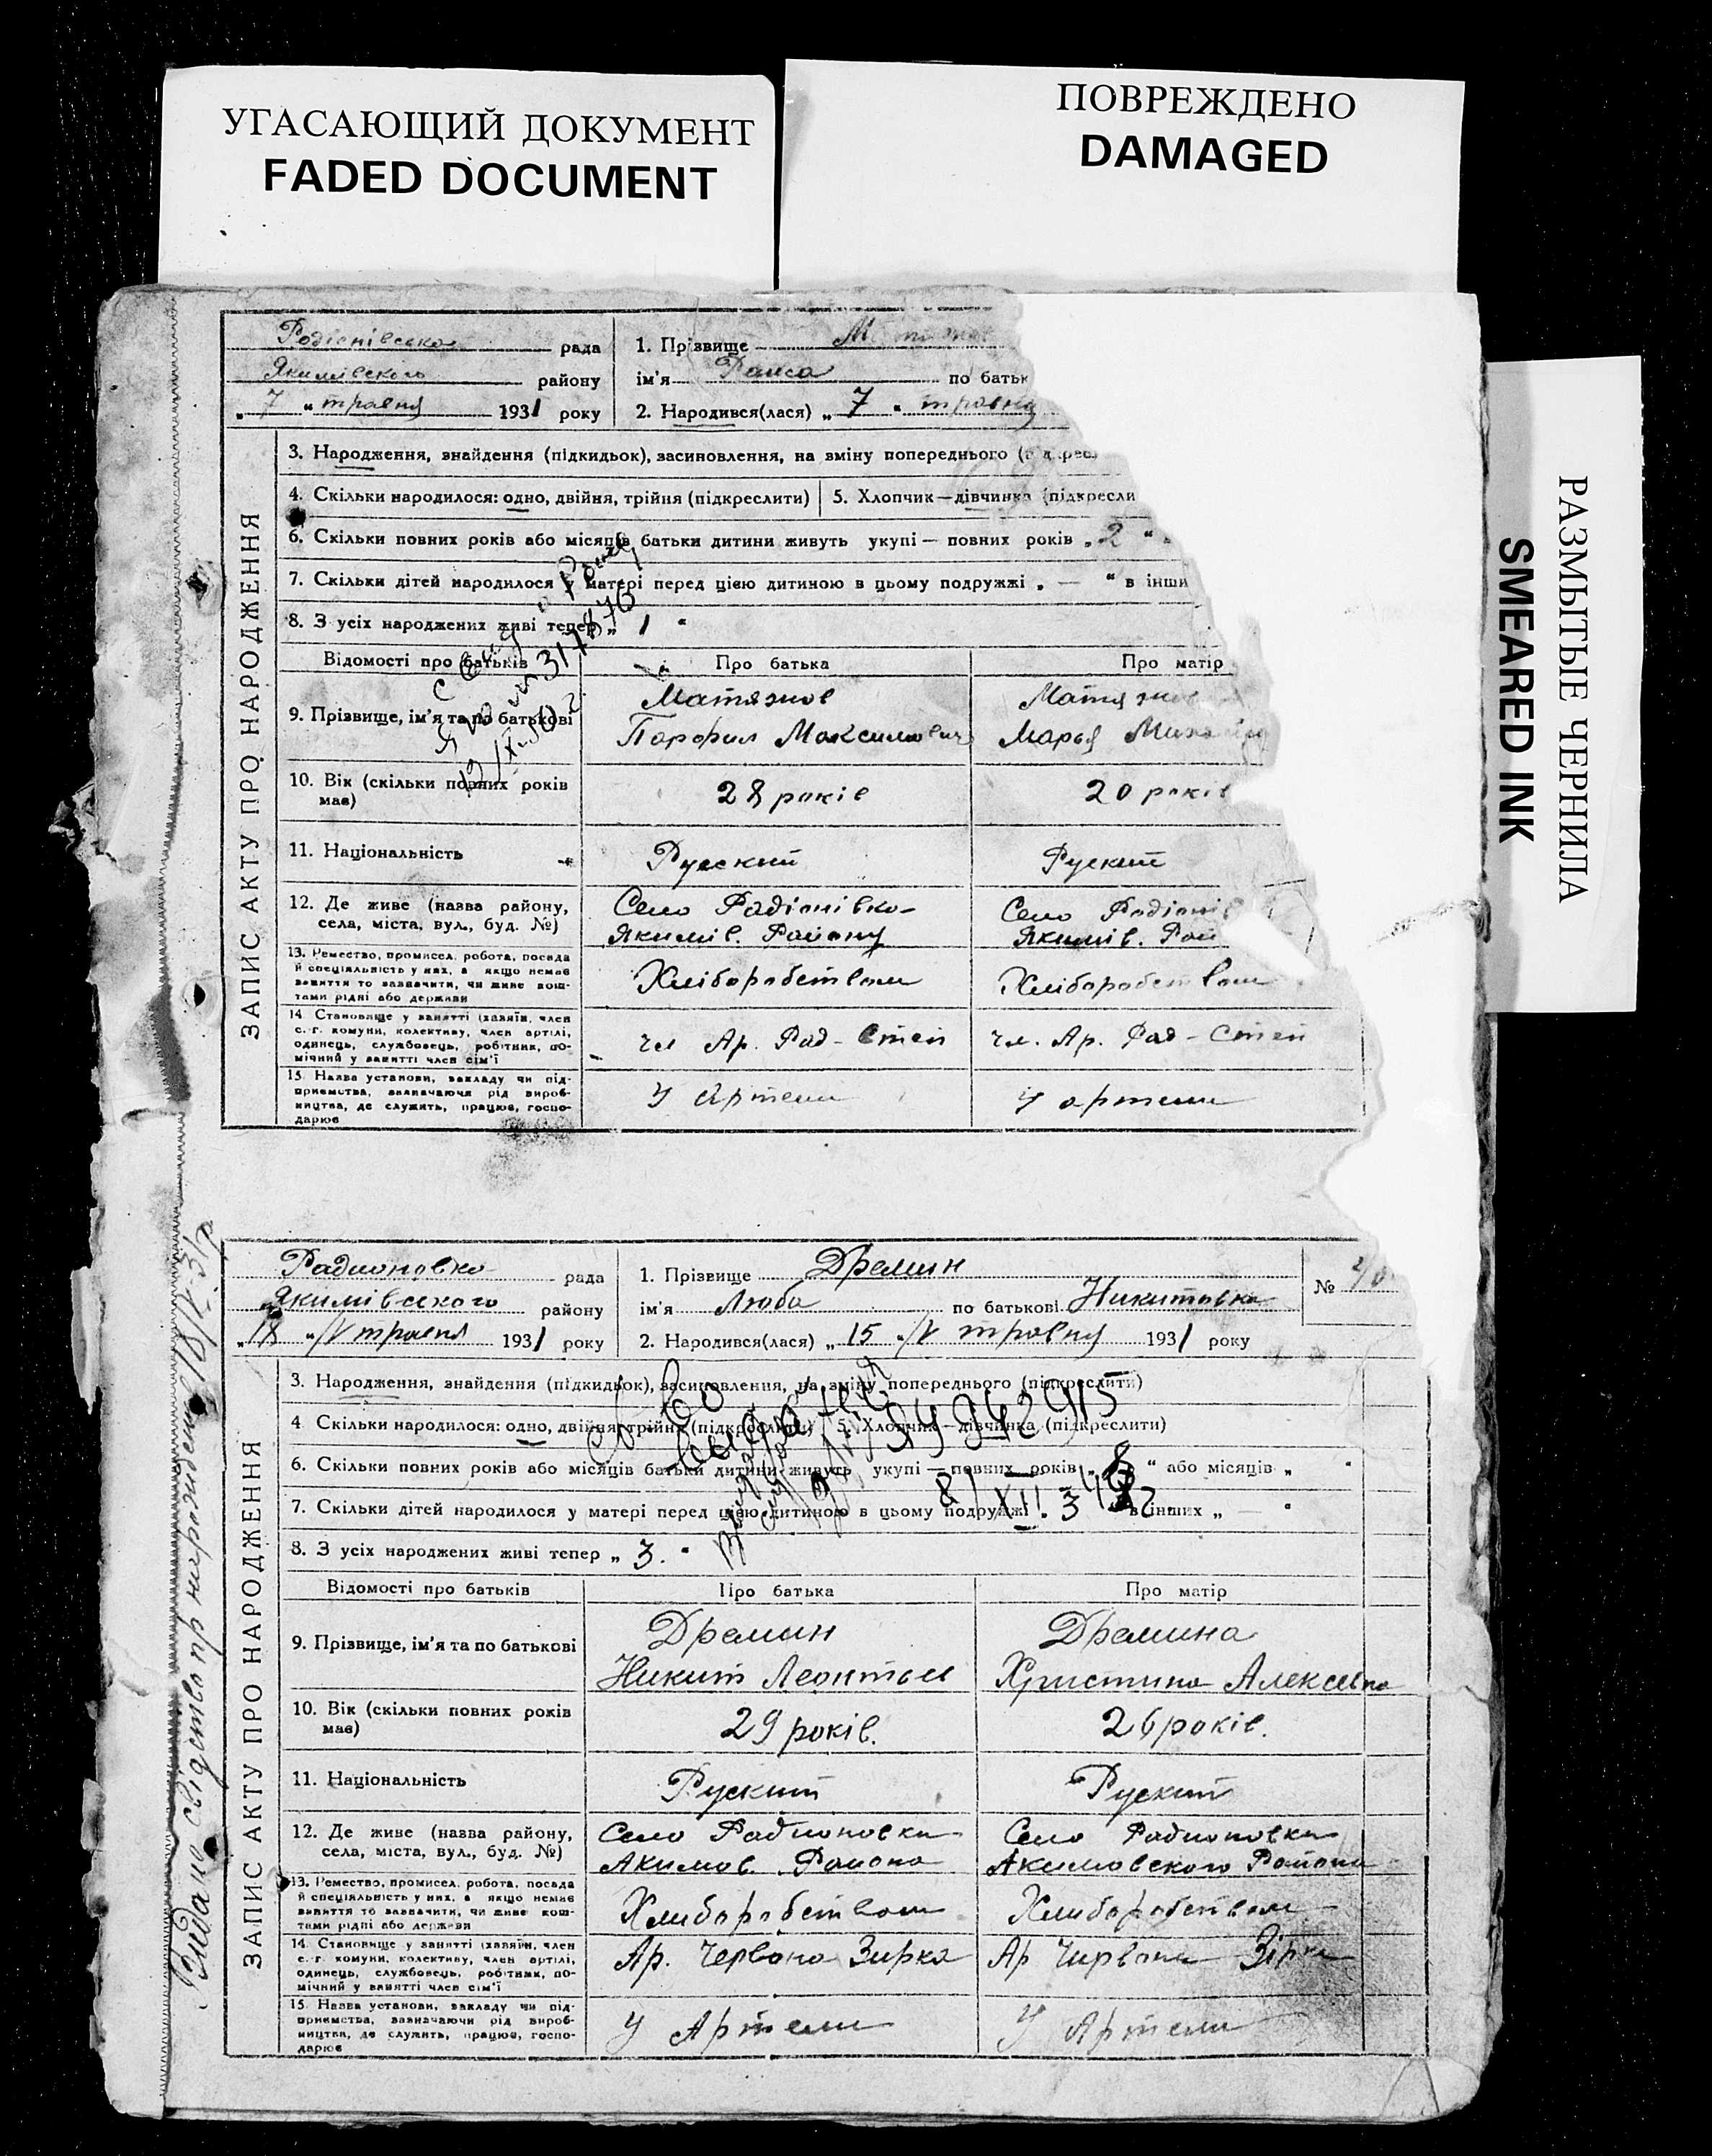 УГАСАЮЩИЙ ДОКУМЕНТ
FADED DOCUMENT
ПОВРЕЖДЕНО
DAMAGED
РАЗМЫТЫЕ ЧЕРНИЛА
SMEARED INK
ЗАПИС АКТУ ПРО НАРОДЖЕННЯ
Родіонівська рада
Якимівського району
„ 7 “ травня 1931 року
1. Прізвище
ім'я Раиса по батьк
2. Народився(лася) „ 7 “ травня
3. Народження, знайдення (підкидьок), засиновлення, на зміну попереднього (підкрес
4. Скільки народилося: одно, двійня, трійня (підкреслити) 5. Хлопчик—дівчинка (підкресли
6. Скільки повних років або місяців батьки дитини живуть укупі — повних років „ 2 “
7. Скільки дітей народилося у матері перед цією дитиною в цьому подружжі „ — “ в інши
8. З усіх народжених живі тепер „ 1 “
Відомості про батьків Про батька Про матір
9. Прізвище, ім'я та по батькові
Матяжов
Парфил Максимович
Матяжов
Марья
10. Вік (скільки повних років має) 28 років 20 років
11. Національність Русский Руский
12. Де живе (назва району, села, міста, вул., буд. №)
Село Радіонівка
Якимів. Району
Село Радіонів
Якимів. Рай
13. Ремество, промисел, робота, посада й спеціяльність у них, а якщо немає заняття то зазначити, чи живе коштами рідні або держави
Хліборобством Хліборобством
14. Становище у занятті (хазяїн, член с.-г. комуни, колективу, член артілі, одинець, службовець, робітник, помічний у занятті член сім'ї
чл Ар. Рад - Степ чл. Ар. Рад - Степ
15. Назва установи, закладу чи підприємства, зазначаючи рід виробництва, де служить, працює, господарює
У Артели У артели
317876
Видано свідетво пр народження 18/V-31р
ЗАПИС АКТУ ПРО НАРОДЖЕННЯ
Радионовка рада
Якимівського району
„ 18 “ /V травня 1931 року
1. Прізвище Дремин
ім'я Люба по батькові Никитовна
2. Народився(лася) „ 15 “ /V травня 1931 року
№
3. Народження, знайдення (підкидьок), засиновлення, на зміну попереднього (підкреслити)
4. Скільки народилося: одно, двійня, трійня (підкреслити) 5. Хлопчик—дівчинка (підкреслити)
6. Скільки повних років або місяців батьки дитини живуть укупі — повних років „ 8 “ або місяців „ “
7. Скільки дітей народилося у матері перед цією дитиною в цьому подружжі в інших „ — “
8. З усіх народжених живі тепер „ 3. “
Відомості про батьків Про батька Про матір
9. Прізвище, ім'я та по батькові
Дремин
Никит Леонтьи
Дремина
Христина Алексевна
10. Вік (скільки повних років має) 29 років. 26 років.
11. Національність Руский Руский
12. Де живе (назва району, села, міста, вул., буд. №)
Село Радионовки
Акимов. Района
Село Радионовки
Акимовского Района
13. Ремество, промисел, робота, посада й спеціяльність у них, а якщо немає заняття то зазначити, чи живе коштами рідні або держави
Хлиборобством Хлиборобством
14. Становище у занятті (хазяїн, член с.-г. комуни, колективу, член артілі, одинець, службовець, робітник, помічний у занятті член сім'ї
Ар. Червона Зирка Ар Чирвони Зірка
15. Назва установи, закладу чи підприємства, зазначаючи рід виробництва, де служить, працює, господарює
У Артели У Артели